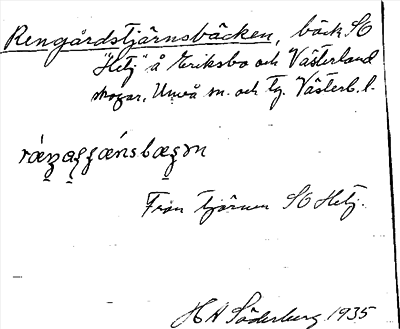 Rengårdstjärnsbäcken, bäck SO
"Hetj" å Eriksbo och Västerland
skogar, Umeå sn. och tg. Västerb. l.
Från tjärnen SO Hetj.
H A Söderberg 1935